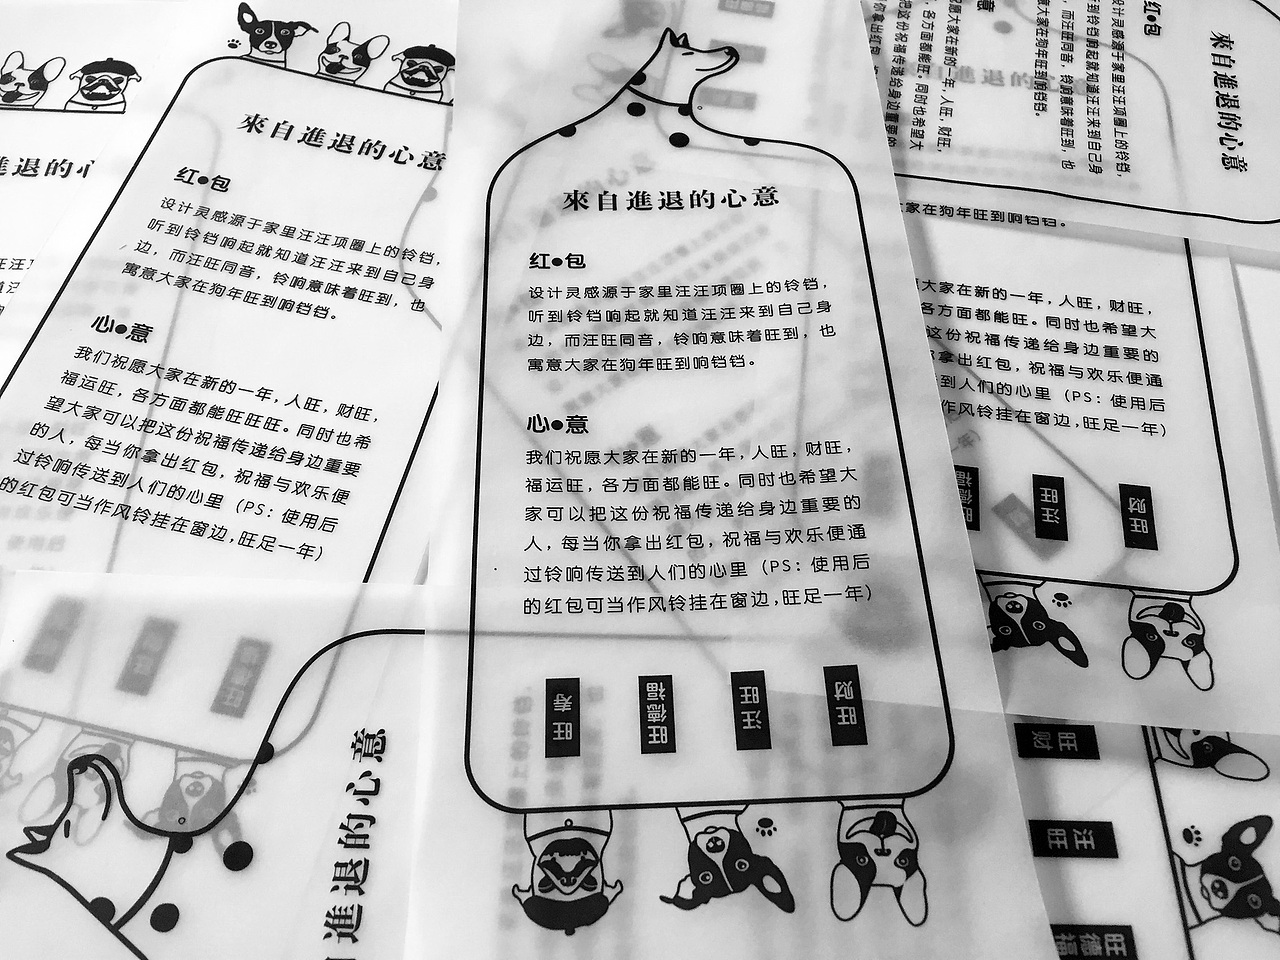 來自進退的心意
红●包
设计灵感源于家里汪汪项圈上的铃铛,
听到铃铛响起就知道汪汪来到自己身
边, 而汪旺同音, 铃响意味着旺到, 也
寓意大家在狗年旺到响铛铛。
心●意
我们祝愿大家在新的一年, 人旺, 财旺,
福运旺, 各方面都能旺。同时也希望大
家可以把这份祝福传递给身边重要的
人, 每当你拿出红包, 祝福与欢乐便通
过铃响传送到人们的心里 (PS: 使用后
的红包可当作风铃挂在窗边,旺足一年)
旺寿
旺德福
旺汪
旺财
來自進退的心意
红●包
设计灵感源于家里汪汪项圈上的铃铛,
听到铃铛响起就知道汪汪来到自己身
边, 而汪旺同音, 铃响意味着旺到, 也
寓意大家在狗年旺到响铛铛。
心●意
我们祝愿大家在新的一年, 人旺, 财旺,
福运旺, 各方面都能旺旺旺。同时也希
望大家可以把这份祝福传递给身边重要
的人, 每当你拿出红包, 祝福与欢乐便
过铃响传送到人们的心里 (PS: 使用后
的红包可当作风铃挂在窗边,旺足一年)
來自進退的心意
红●包
设计灵感源于家里汪汪项圈上的铃铛,
听到铃铛响起就知道汪汪来到自己身
而汪旺同音, 铃响意味着旺到, 也
意大家在狗年旺到响铛铛。
家在狗年旺到响铛铛。
大家在新的一年, 人旺, 财旺,
各方面都能旺。同时也希望大
这份祝福传递给身边重要的
拿出红包, 祝福与欢乐便通
到人们的心里 (PS: 使用后
作风铃挂在窗边,旺足一年)
旺汪
旺财
旺财
旺汪
旺德福
進退的心意